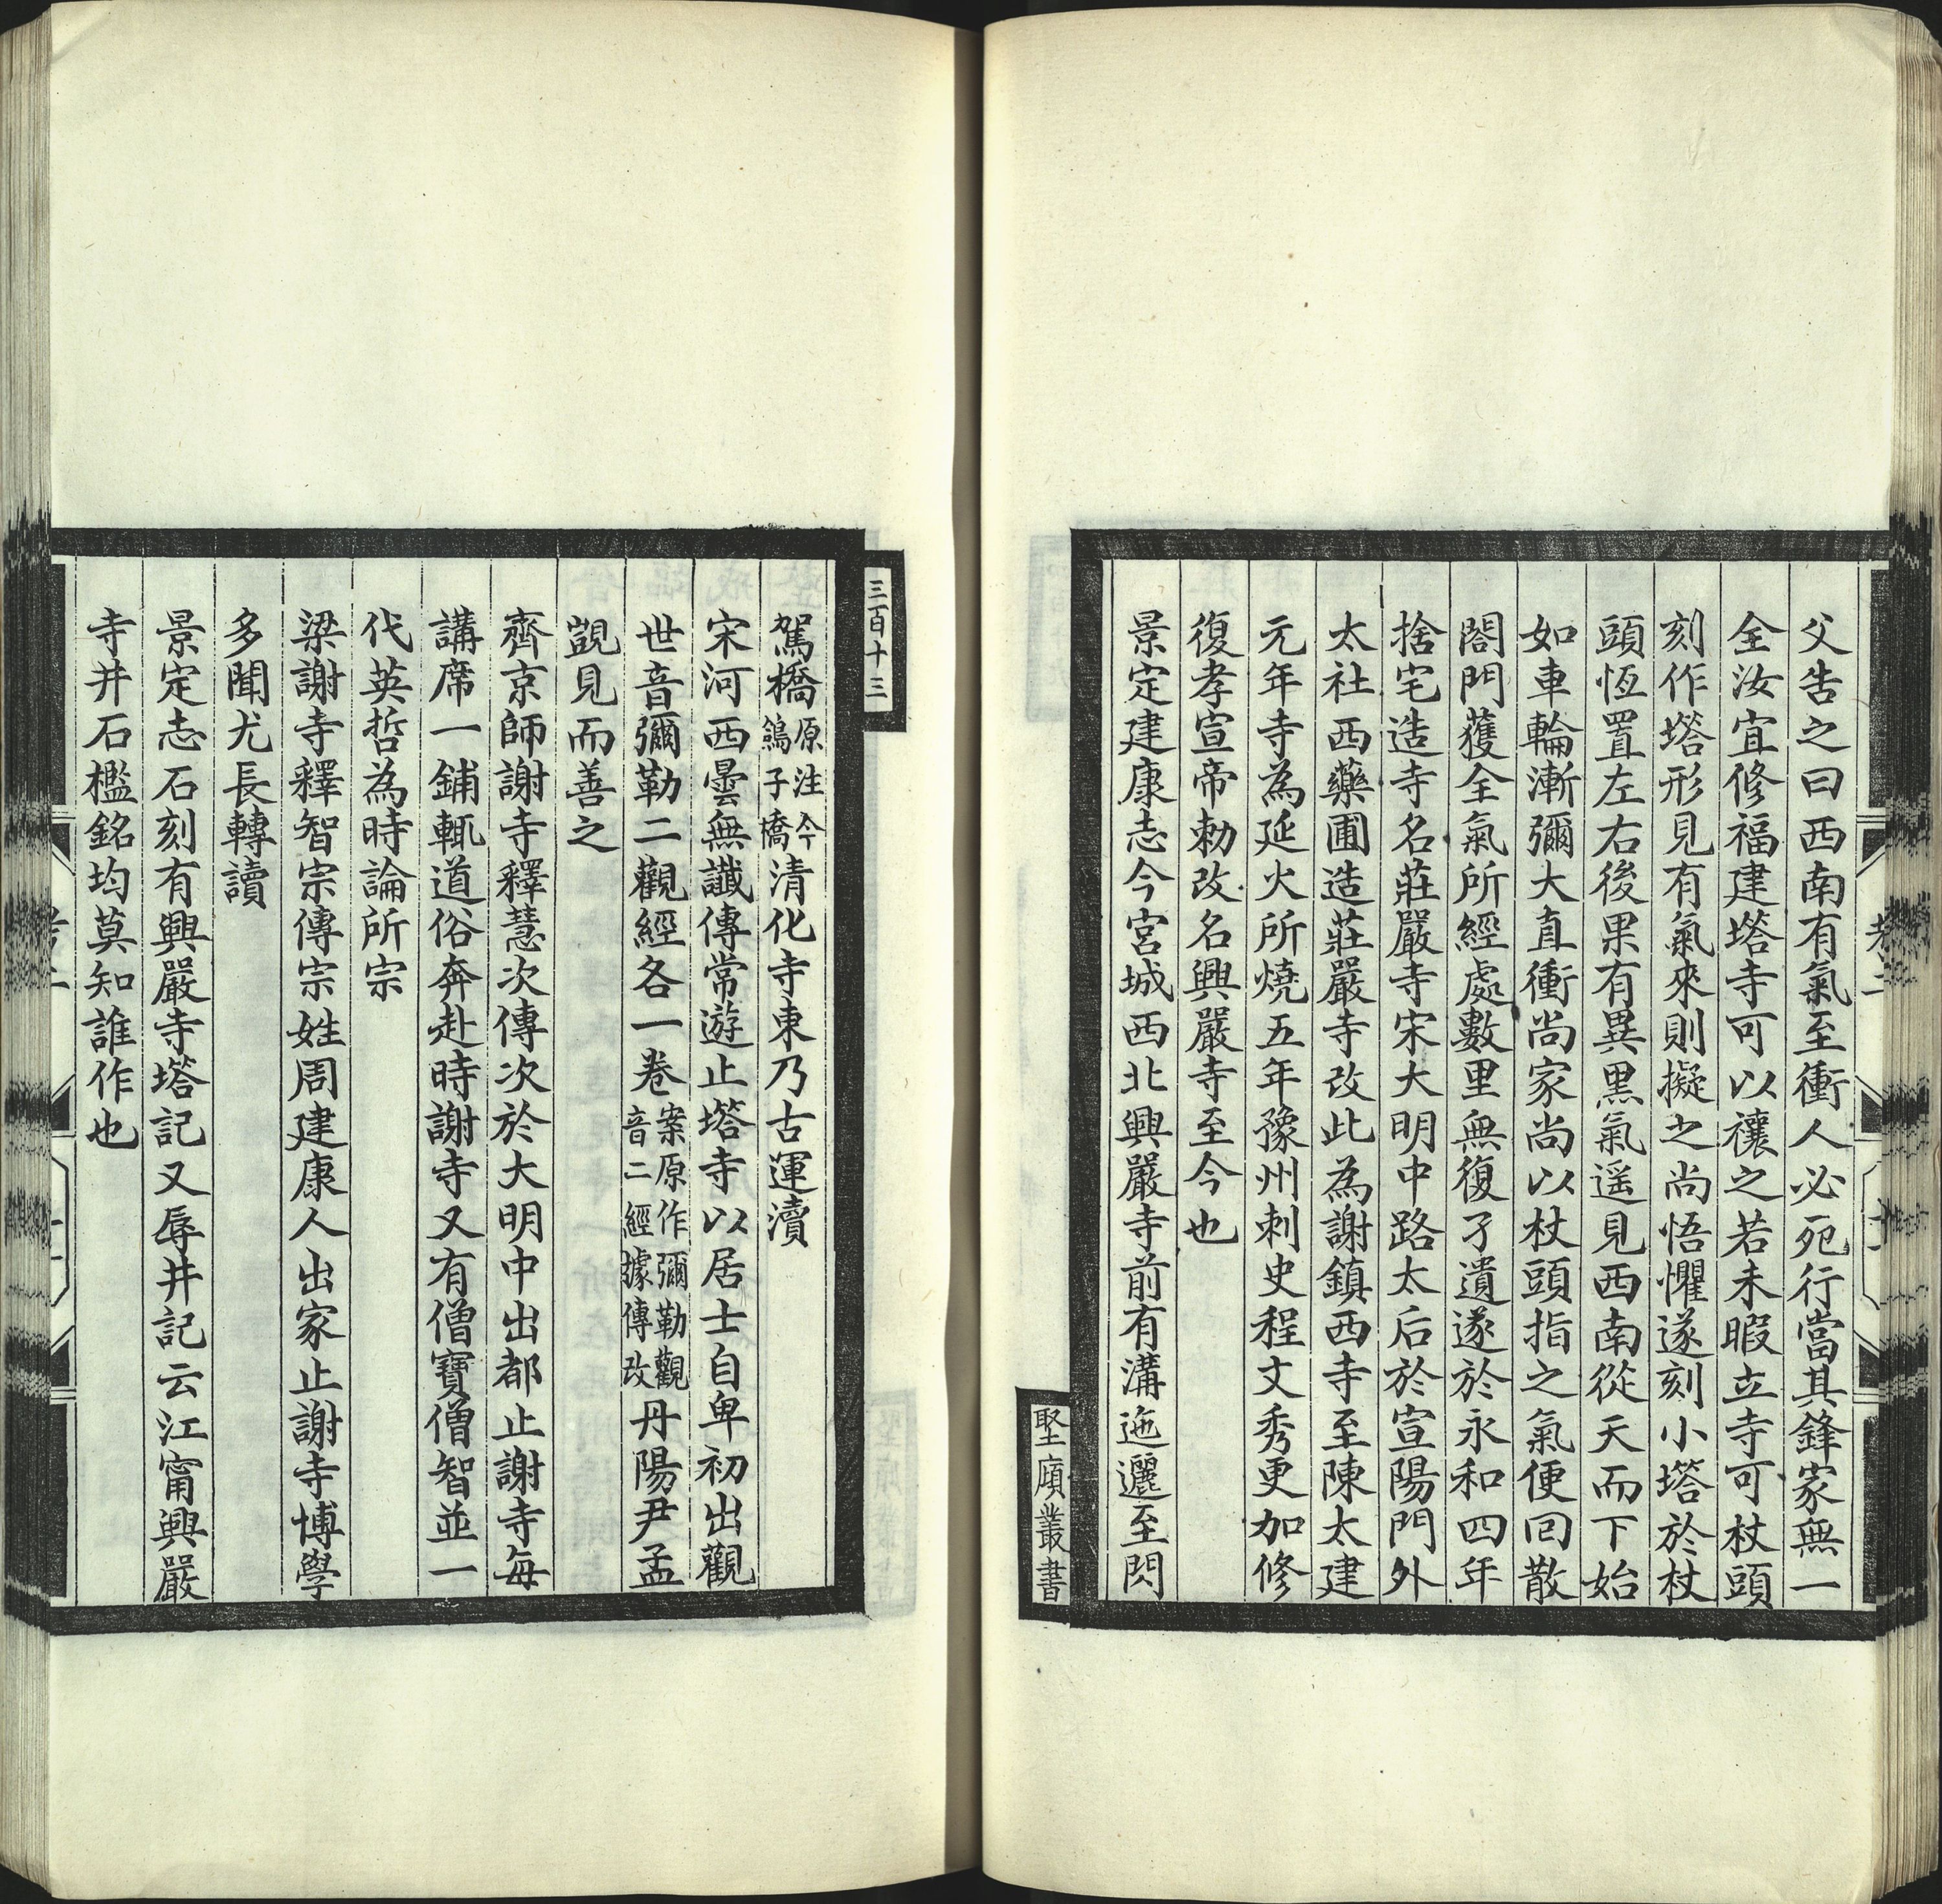 父告之曰西南有氣至衝人必死行當其鋒家無一
全汝宜修福建塔寺可以禳之若未暇立寺可杖頭
刻作塔形見有氣來則擬之尚悟懼遂刻小塔於杖
頭恆置左右後果有異黑氣遥見西南從天而下始
如車輪漸彌大直衝尚家尚以杖頭指之氣便回散
閤門獲全氣所經處數里無復孑遺遂於永和四年
捨宅造寺名莊嚴寺宋大明中路太后於宣陽門外
太社西藥圃造莊嚴寺改此為謝鎮西寺至陳太建
元年寺為延火所燒五年豫州刺史程文秀更加修
復孝宣帝勅改名興嚴寺至今也
景定建康志今宮城西北興嚴寺前有溝迤邐至閃
堅廎叢書
三百十三
駕橋原注今鴿子橋清化寺東乃古運瀆
宋河西曇無讖傳常遊止塔寺以居士自卑初出觀
世音彌勒二觀經各一卷案原作彌勒觀音二經據傳改丹陽尹孟
覬見而善之
齊京師謝寺釋慧次傳次於大明中出都止謝寺每
講席一鋪輒道俗奔赴時謝寺又有僧寶僧智並一
代英哲為時論所宗
梁謝寺釋智宗傳宗姓周建康人出家止謝寺博學
多聞尤長轉讀
景定志石刻有興嚴寺塔記又辱井記云江甯興嚴
寺井石檻銘均莫知誰作也